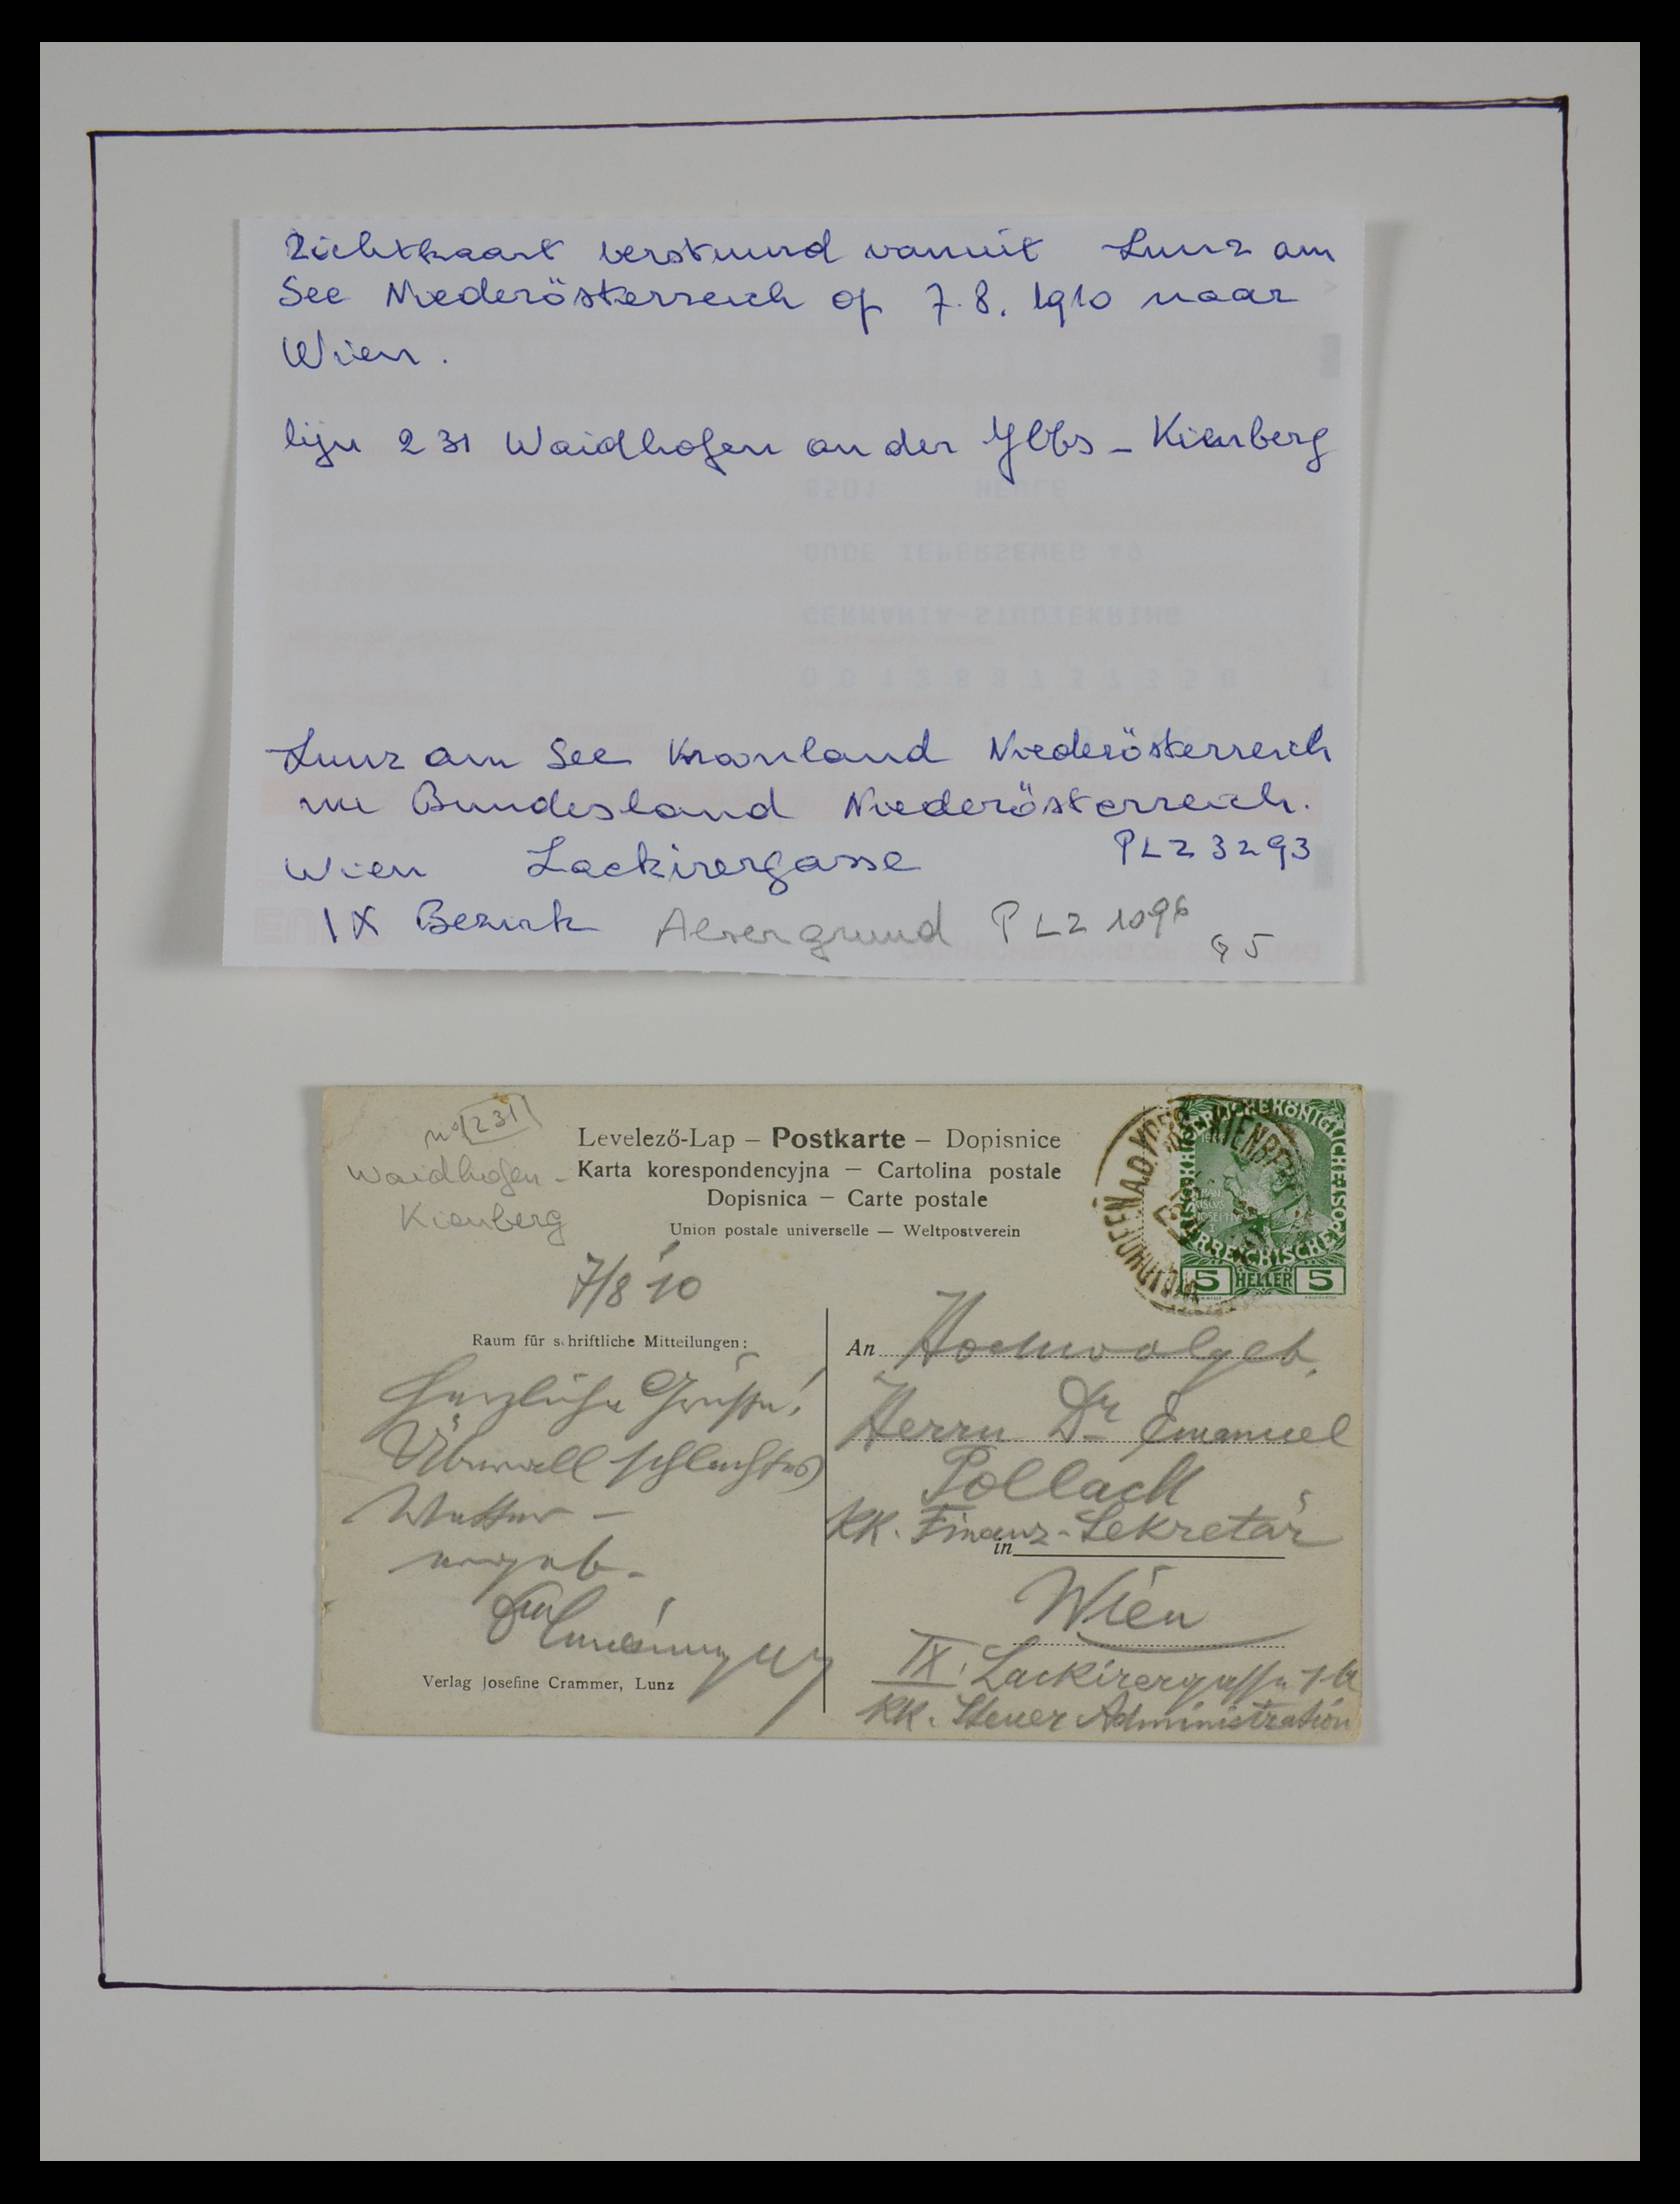 Zichtkaart verstuurd vanuit Lunz am
See Niederösterreich op 7.8.1910 naar
Wien.
lijn 231 Waidhofen an der Ybbs - Kienberg
Lunz am See Kroonland Niederösterreich
nu Bundesland Niederösterreich.
PLZ 3293
Wien Lackirergasse
IX Bezirk Alsergrund PLZ 1096
G5
no 231
Waidhofen -
Kienberg
Levelező-Lap – Postkarte – Dopisnice
Karta korespondencyjna – Cartolina postale
Dopisnica – Carte postale
Union postale universelle — Weltpostverein
WAIDHOFEN A.D. YBBS KIENBERG
5 HELLER 5
7/8 10
Raum für schriftliche Mitteilungen:
Herzliche Grüße!
Überall schlechtes
Wetter –
ergeb.
Verlag Josefine Crammer, Lunz
An Hochwolgeb.
Herrn Dr Emanuel
Pollack
KK. Finanz-Sekretär
in
Wien
IX. Lackirergasse
KK. Steuer Administration